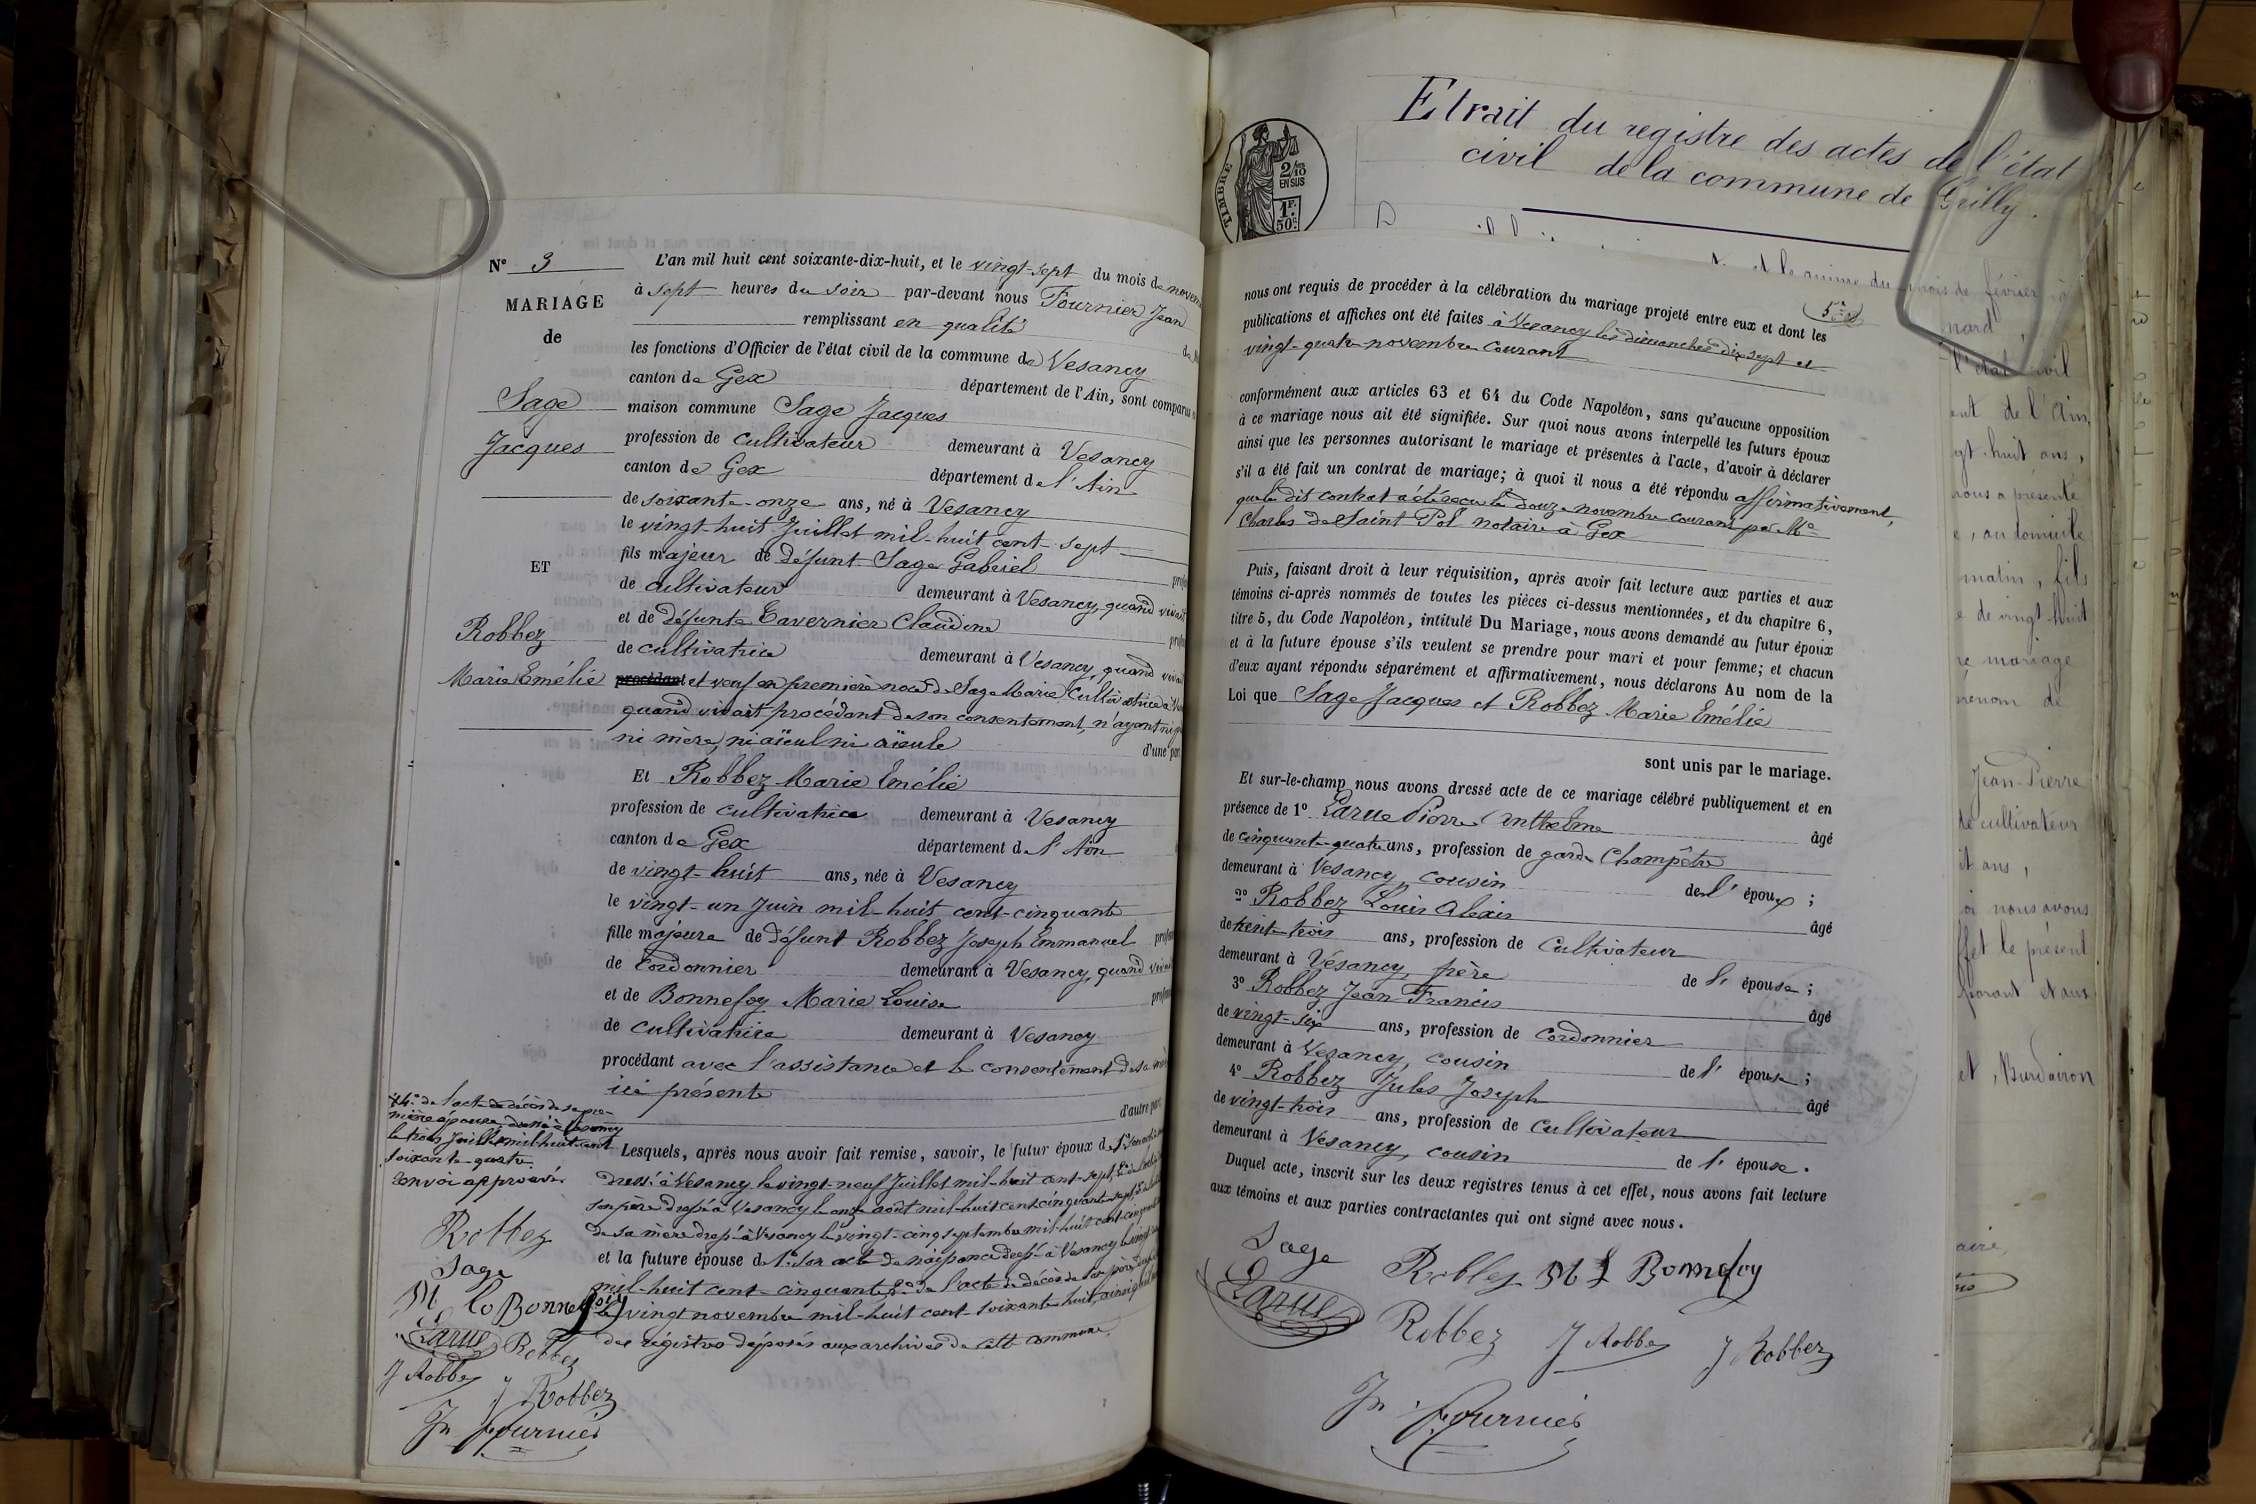 N° 3
MARIAGE
de
Sage
Jacques
ET
Robbez
Marie Emélie
L'an mil huit cent soixante-dix-huit, et le vingt-sept du mois de novem
à sept heures du soir par-devant nous Fournier Jean
remplissant en qualité
les fonctions d'Officier de l'état civil de la commune de Vesancy
canton de Gex département de l'Ain, sont comparus
maison commune Sage Jacques
profession de cultivateur demeurant à Vesancy
canton de Gex département de l'Ain
de soixante-onze ans, né à Vesancy
le vingt-huit Juillet mil-huit cent-sept
fils majeur de défunt Sage Gabriel
de cultivateur demeurant à Vesancy, quand vivait
et de défunte Tavernier Claudine
de cultivatrice demeurant à Vesancy, quand vivait
procédant et veuf en première noce de Sage Marie Cultivatrice à
quand vivait procédant de son consentement, n'ayant ni
ni mère, ni aïeul ni aïeule d'une part
Et Robbez Marie Emélie
profession de cultivatrice demeurant à Vesancy
canton de Gex département de l'Ain
de vingt-huit ans, née à Vesancy
le vingt-un Juin mil-huit cent-cinquante
fille majeure de défunt Robbez Joseph Emmanuel
de Cordonnier demeurant à Vesancy, quand vivait
et de Bonnefoy Marie Louise
de cultivatrice demeurant à Vesancy
procédant avec l'assistance et le consentement de sa mère
ici présente
d'autre part
Lesquels, après nous avoir fait remise, savoir, le futur époux de 1° son acte
dressé à Vesancy le vingt-neuf Juillet mil-huit cent-sept, 2° de
son père dressé à Vesancy le onze août mil-huit cent cinquante-sept, 3°
de sa mère dressé à Vesancy le vingt-cinq septembre mil-huit cent
et la future épouse de 1° son acte de naissance dressé à Vesancy le vingt
mil-huit cent-cinquante 2° de l'acte de décès de son père
le vingt novembre mil-huit cent soixante-huit, ainsi
des registres déposés aux archives de cette commune.
4° de l'acte de décès de sa pre-
mière épouse dressé à Vesancy
le trois Juillet mil huit cent
soixante quatre.
Renvoi approuvé.
Robbez
Sage
M Lo Bonnefoy
Larue Robbez
J Robbez
J Robbez
Jn Fournier
TIMBRE
2/10
EN SUS
1F.
50c.
Etrait du registre des actes de l'état
civil de la commune de Grilly.
nous ont requis de procéder à la célébration du mariage projeté entre eux et dont les
publications et affiches ont été faites à Vesancy les dimanches dix sept et
vingt-quatre novembre courant
conformément aux articles 63 et 64 du Code Napoléon, sans qu'aucune opposition
à ce mariage nous ait été signifiée. Sur quoi nous avons interpellé les futurs époux
ainsi que les personnes autorisant le mariage et présentes à l'acte, d'avoir à déclarer
s'il a été fait un contrat de mariage; à quoi il nous a été répondu affirmativement,
que le dit contrat a été reçu le douze novembre courant par Me
Charles de Saint Pol notaire à Gex
Puis, faisant droit à leur réquisition, après avoir fait lecture aux parties et aux
témoins ci-après nommés de toutes les pièces ci-dessus mentionnées, et du chapitre 6,
titre 5, du Code Napoléon, intitulé Du Mariage, nous avons demandé au futur époux
et à la future épouse s'ils veulent se prendre pour mari et pour femme; et chacun
d'eux ayant répondu séparément et affirmativement, nous déclarons Au nom de la
Loi que Sage Jacques et Robbez Marie Emélie
sont unis par le mariage.
Et sur-le-champ nous avons dressé acte de ce mariage célébré publiquement et en
présence de 1° Larue Pierre Anthelme âgé
de cinquante-quatre ans, profession de garde Champêtre
demeurant à Vesancy, cousin de l'époux ;
2° Robbez Louis Alexis âgé
de trente-trois ans, profession de Cultivateur
demeurant à Vesancy, frère de l' épouse ;
3° Robbez Jean Francis âgé
de vingt-six ans, profession de Cordonnier
demeurant à Vesancy, cousin de l' épouse ;
4° Robbez Jules Joseph âgé
de vingt-trois ans, profession de Cultivateur
demeurant à Vesancy, cousin de l' épouse.
Duquel acte, inscrit sur les deux registres tenus à cet effet, nous avons fait lecture
aux témoins et aux parties contractantes qui ont signé avec nous.
Sage Robbez M L Bonnefoy
Larue Robbez J Robbez J Robbez
Jn Fournier
de février
l'état civil
de l'Ain,
huit ans,
nous a présenté
au domicile
matin, fils
de vingt-huit
mariage
prénom de
Jean-Pierre
de cultivateur
ans,
nous avons
le présent
et aux
et, Burdairon